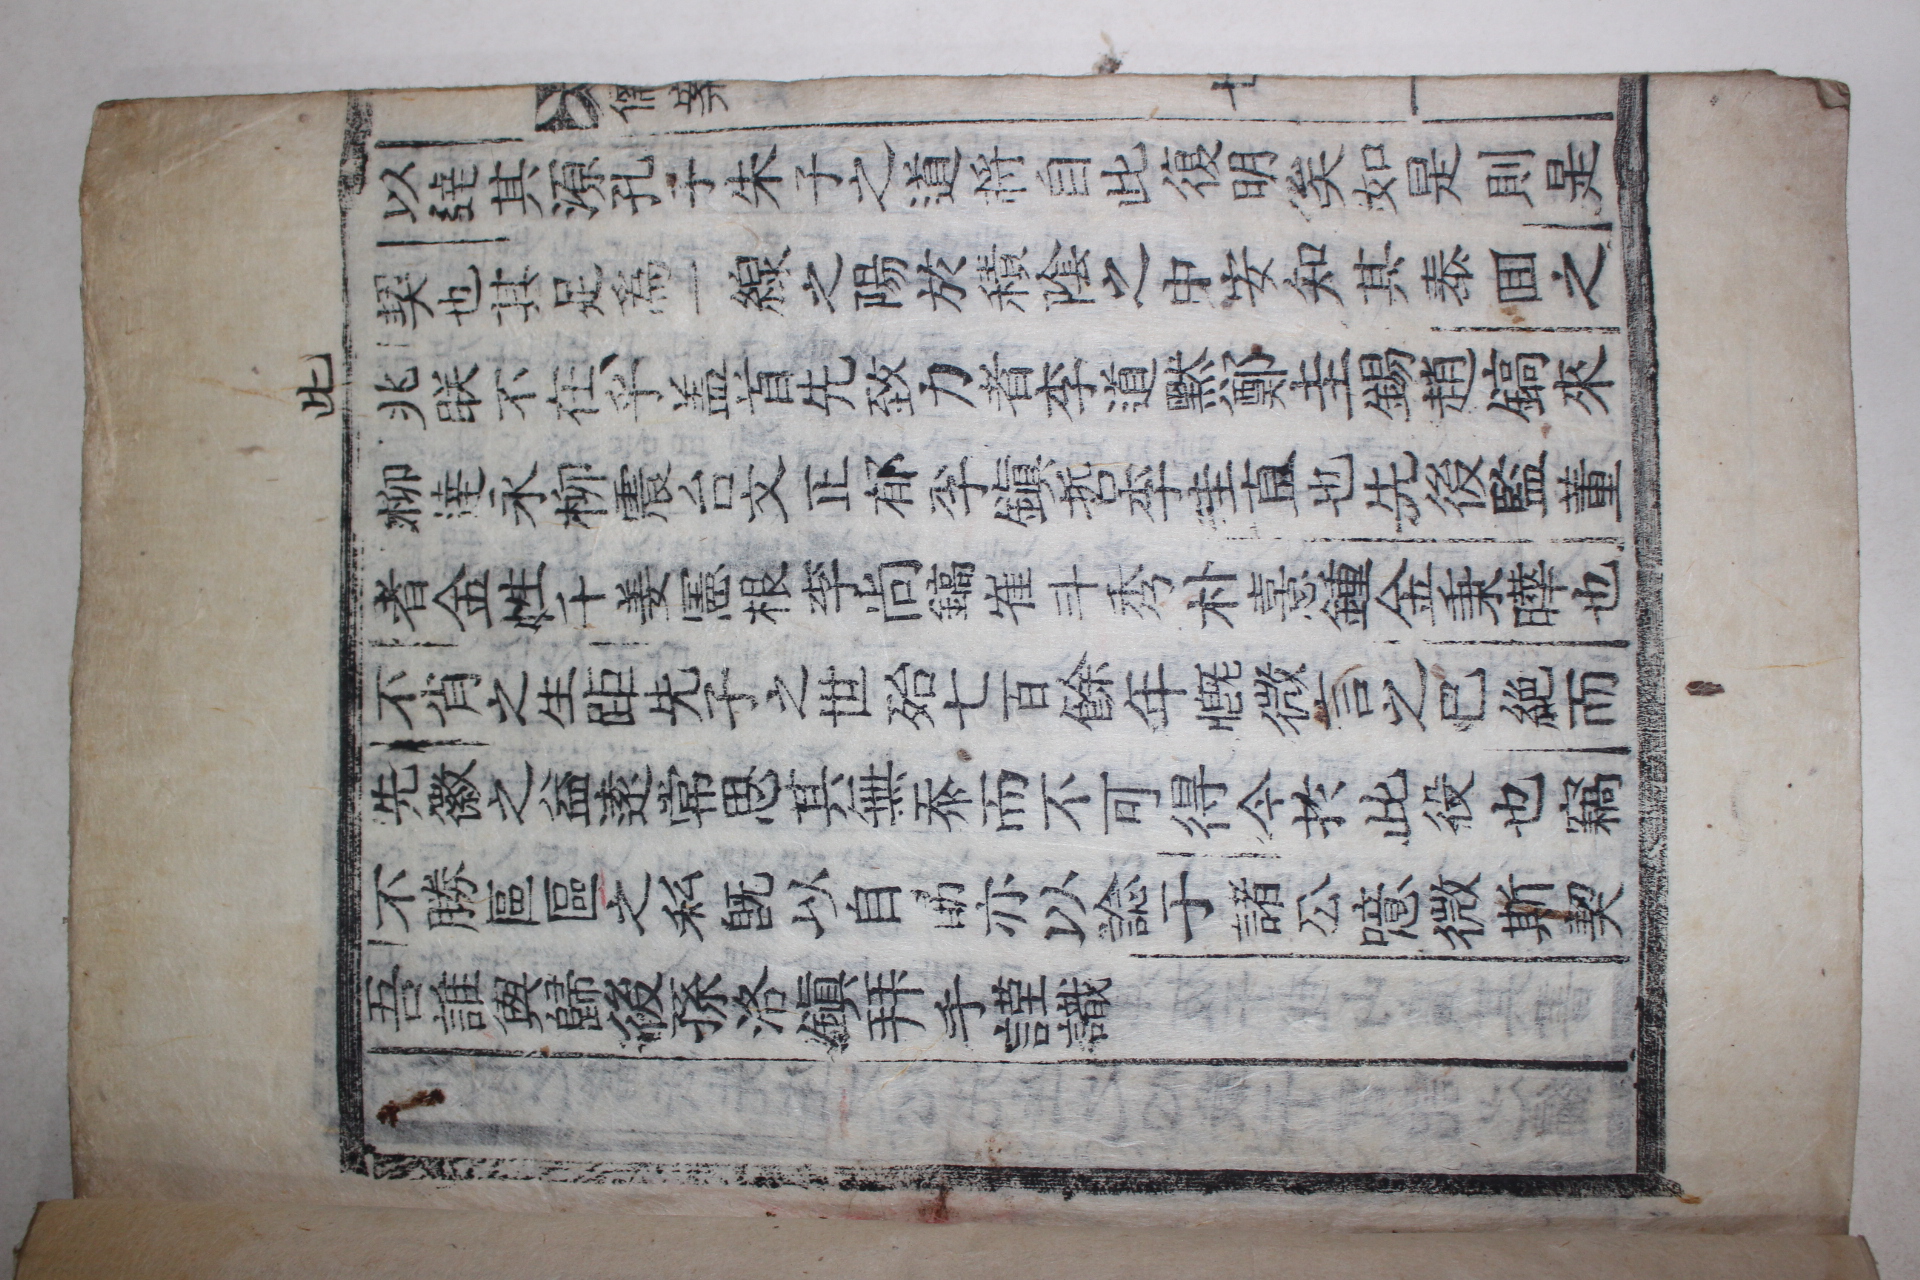 以達其源孔子朱子之道將自此復明矣如是則是
契也其足為一線之陽於積陰之中安知其泰回之
兆眹不在乎盖首先致力者李道黙鄭圭錫趙鎬來
柳達永柳震台文正郁李鎭哲李圭直也先後監董
者金性十姜根李尙鎬崔斗秀朴憲鍾金秉曄也
不肖之生距先子之世殆七百餘年慨微言之已絕而
先徽之益遠常思其無忝而不可得今於此役也竊
不勝區區之私旣以自勖亦以諗于諸公噫微斯契
吾誰與歸後孫洛鎭拜手謹識
此